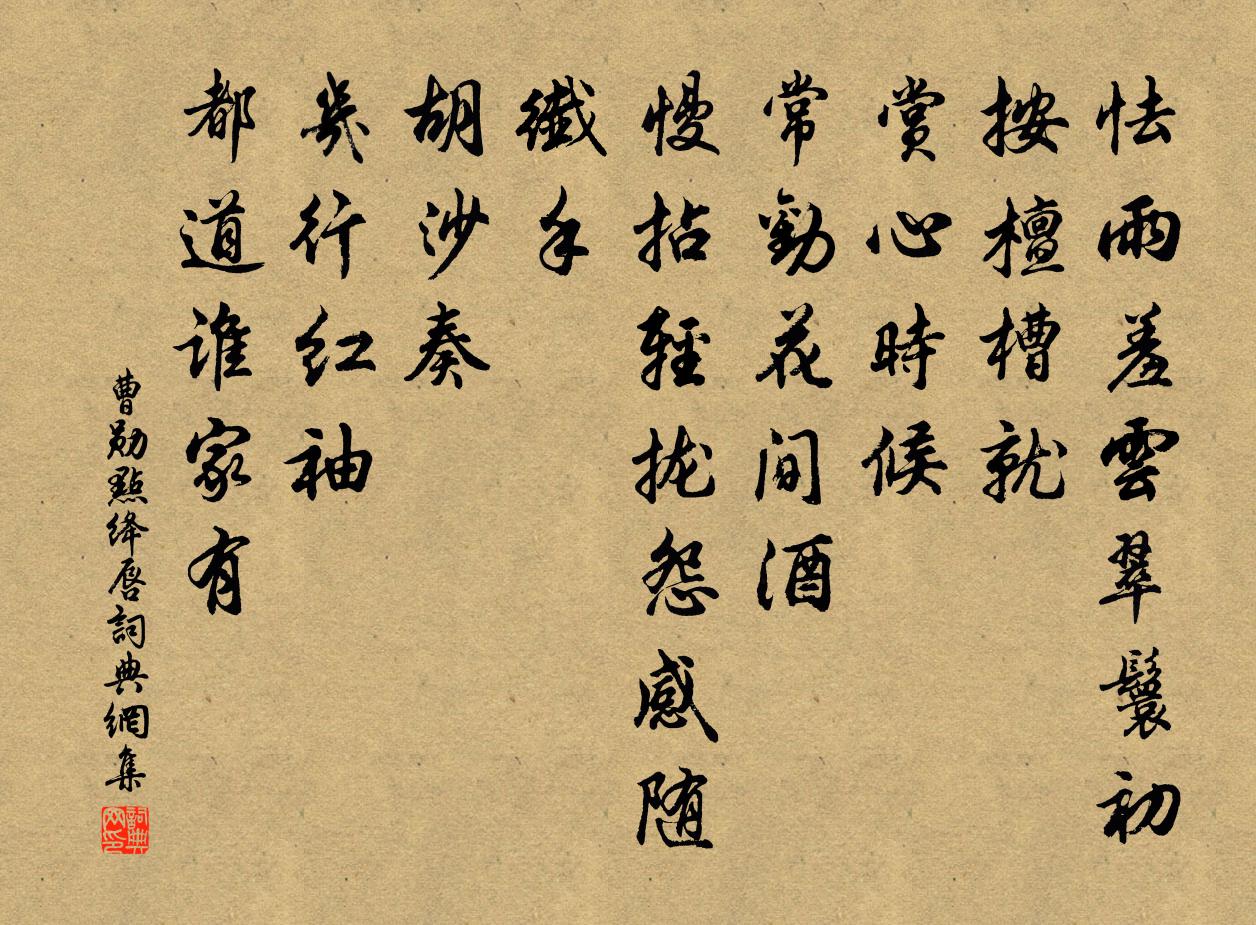 怯雨羞雲翠鬟初
按檀槽就
賞心時候
常勸花間酒
慢拈輕拢怨感随
纖手
胡沙奏
幾行红袖
都道谁家有
曹勋點绛唇詞典網集
詞典网印